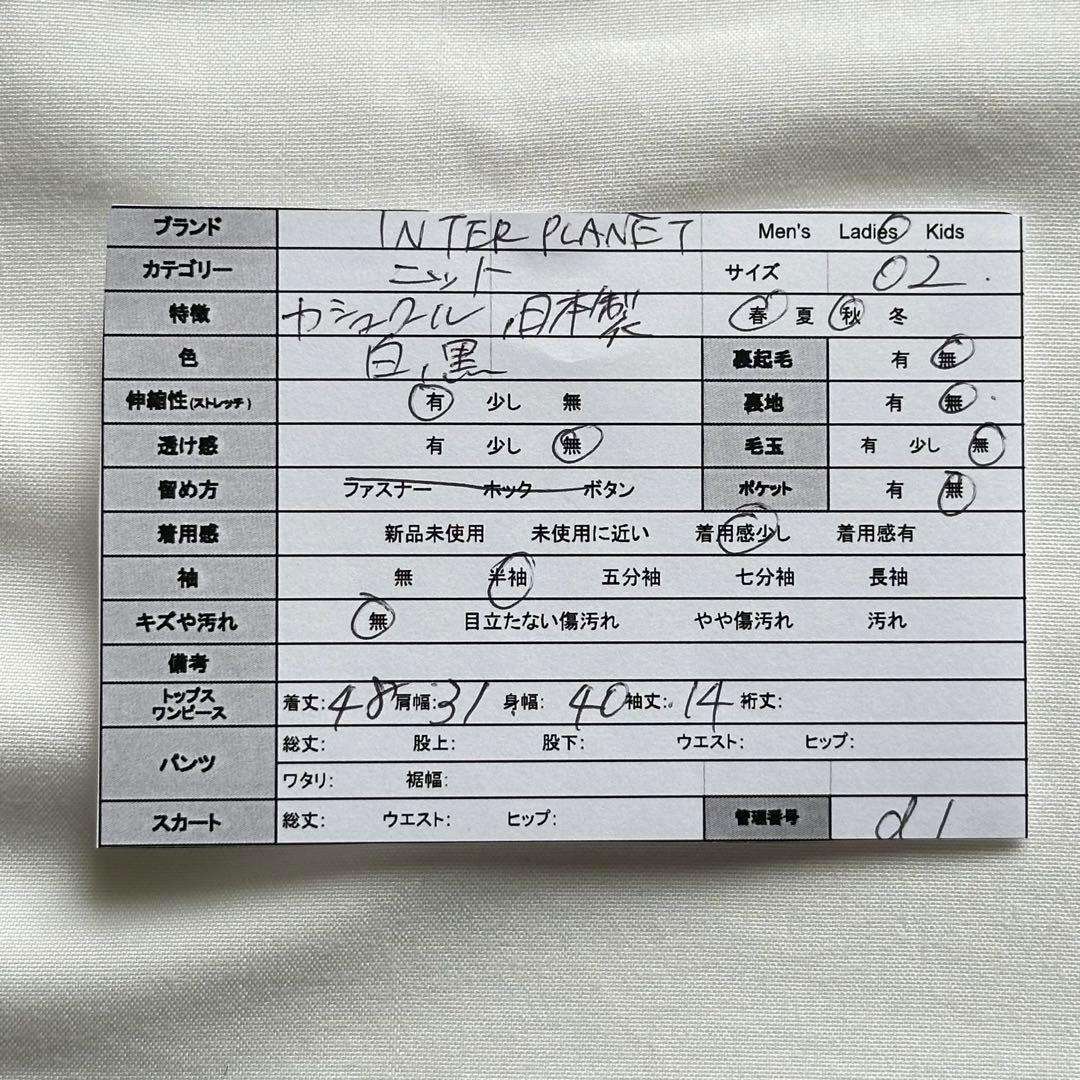 ブランド INTER PLANET Men's Ladies Kids
カテゴリー ニット サイズ 02
特徴 カシュクール,日本製 春 夏 秋 冬
色 白,黒 裏起毛 有 無
伸縮性(ストレッチ) 有 少し 無 裏地 有 無
透け感 有 少し 無 毛玉 有 少し 無
留め方 ファスナー ホック ボタン ポケット 有 無
着用感 新品未使用 未使用に近い 着用感少し 着用感有
袖 無 半袖 五分袖 七分袖 長袖
キズや汚れ 無 目立たない傷汚れ やや傷汚れ 汚れ
備考
トップス
ワンピース 着丈:48 肩幅:31 身幅: 40 袖丈:14 裄丈:
パンツ 総丈: 股上: 股下: ウエスト: ヒップ:
ワタリ: 裾幅:
スカート 総丈: ウエスト: ヒップ: 管理番号 d1